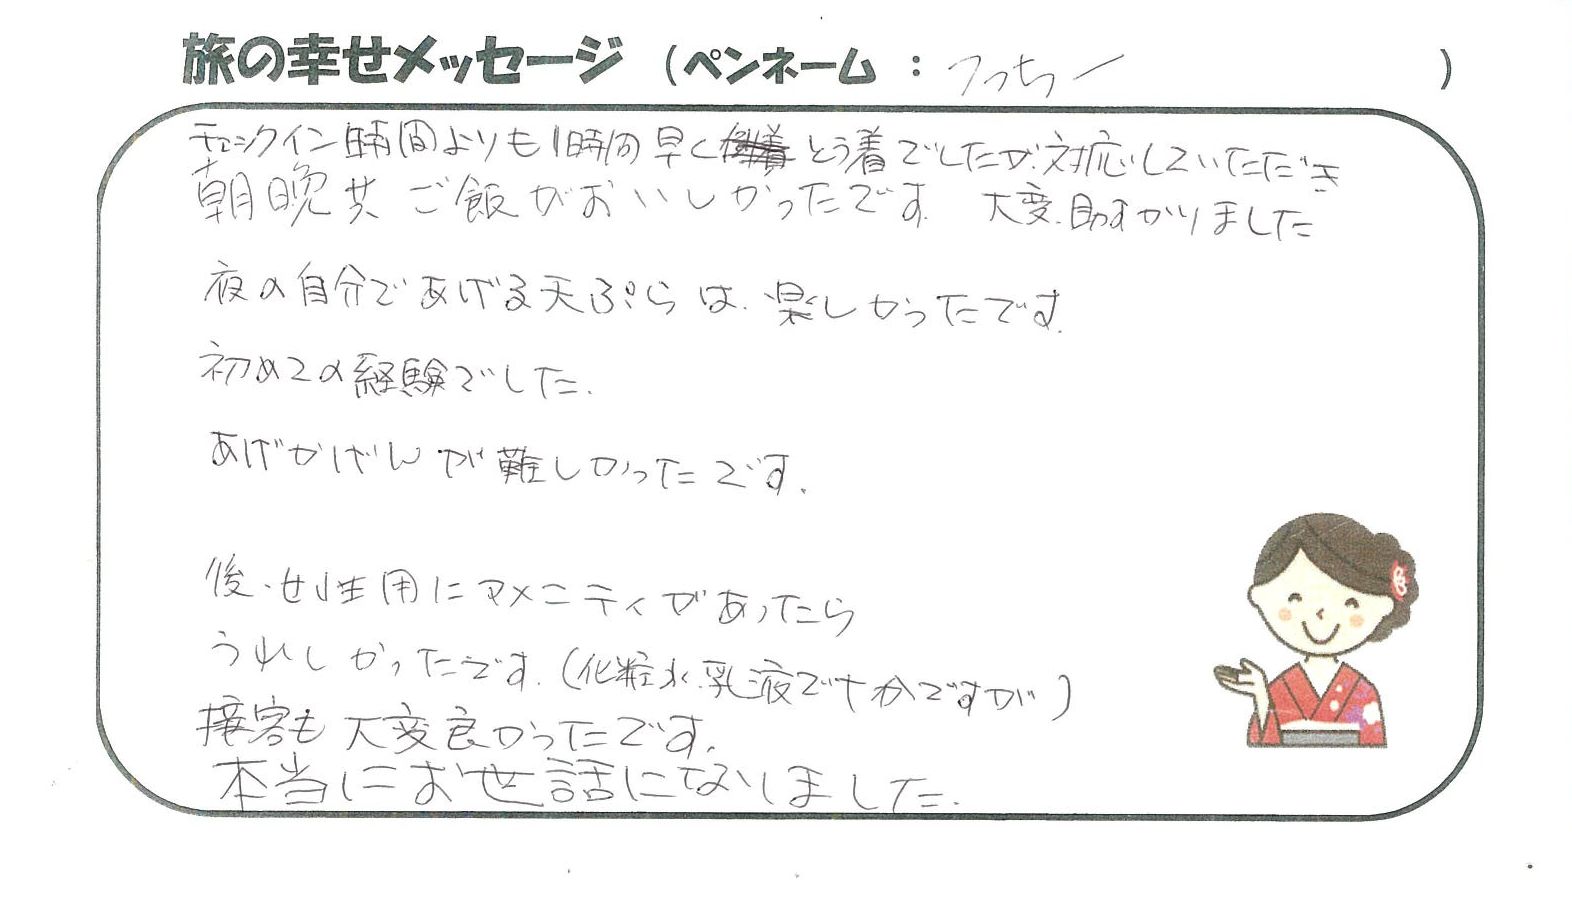 旅の幸せメッセージ (ペンネーム : つっちー )
チェックイン時間よりも1時間早くとう着でしたが、対応していただき
朝晩共ご飯がおいしかったです。 大変、助すかりました
夜の自分であげる天ぷらは、楽しかったです。
初めての経験でした。
あげかげんが難しかったです。
後、女性用にアメニティがあったら
うれしかったです。(化粧水、乳液でなかですが)
接客も大変良かったです。
本当にお世話になしました。